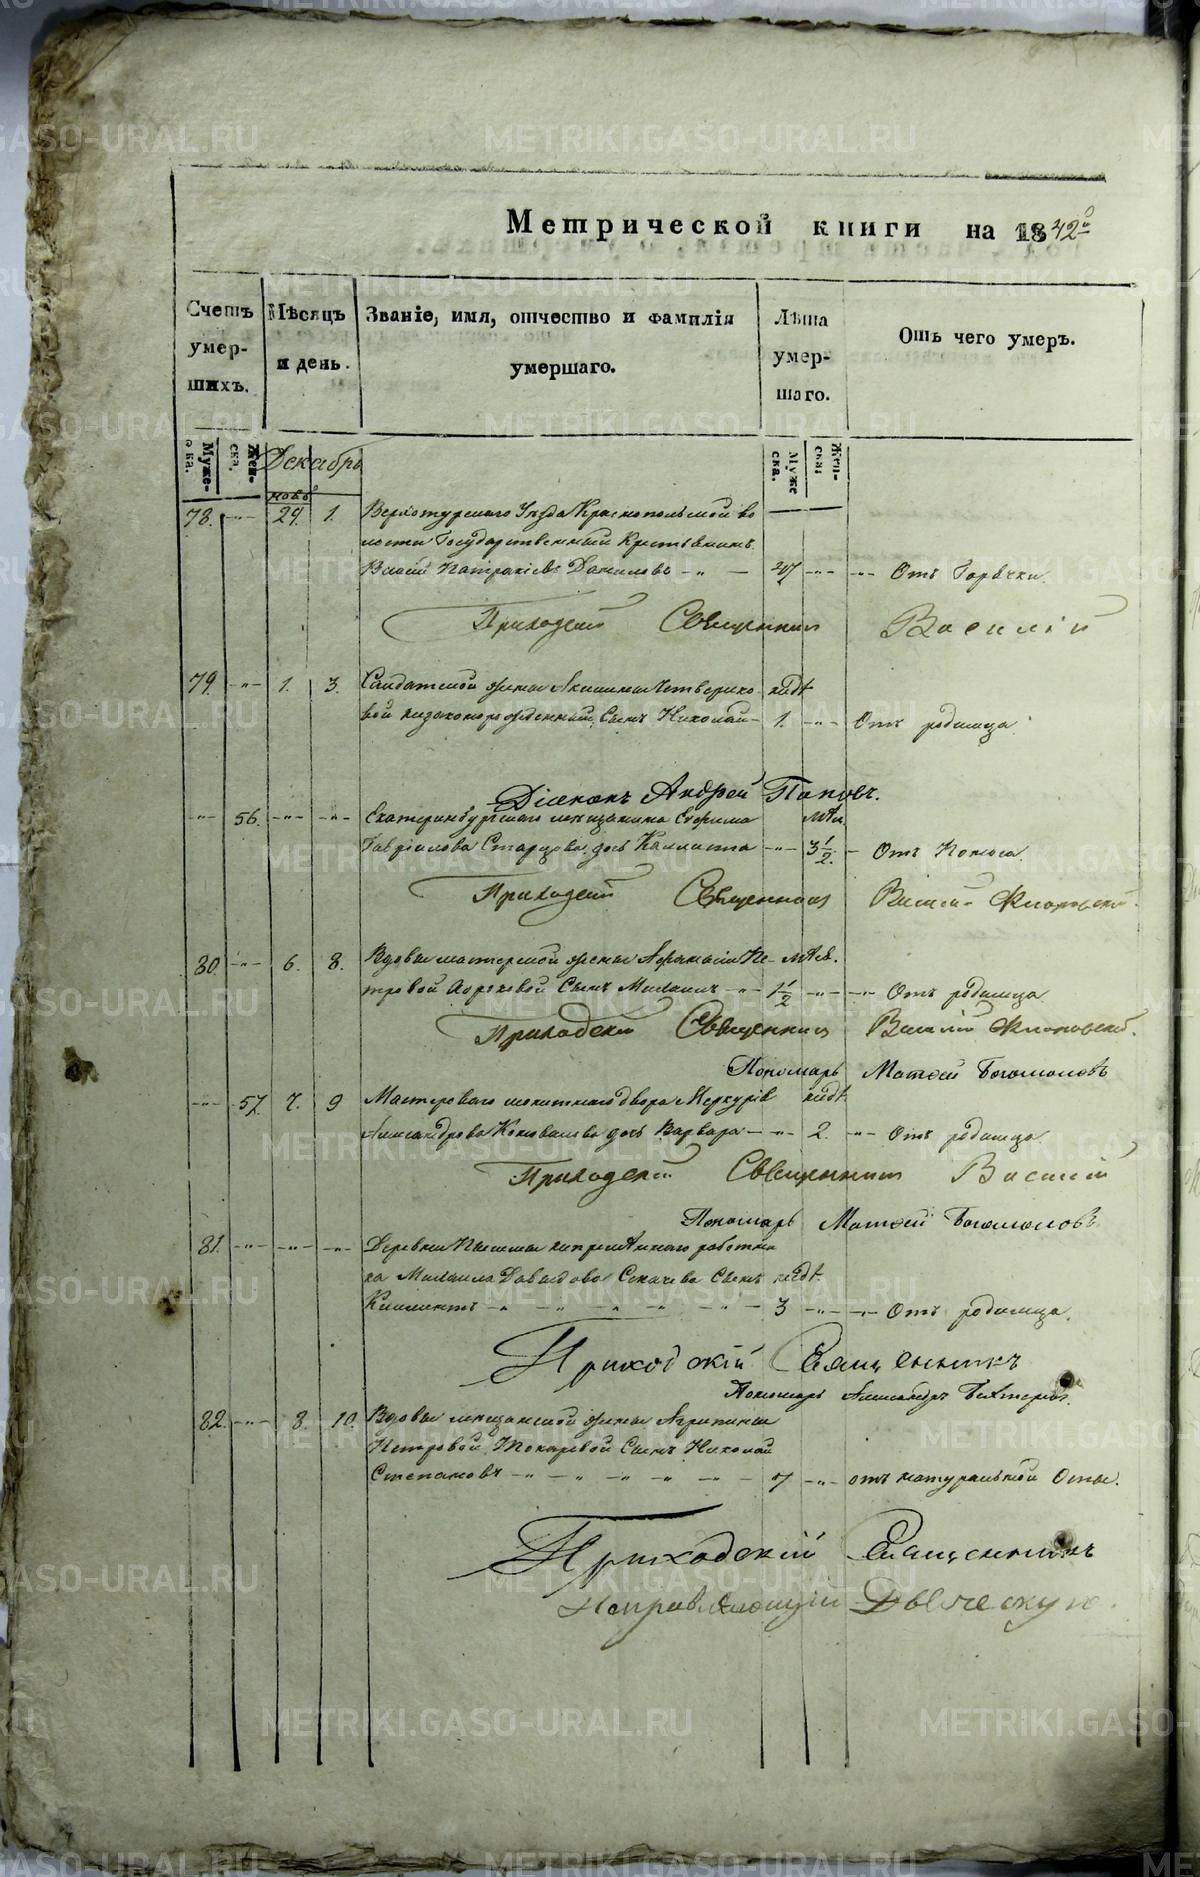 Метрической книги на 1842º
Счетъ умершихъ.
Мѣсяцъ и день.
Званіе, имя, отчество и фамилія умершаго.
Лѣта умершаго.
Отъ чего умеръ.
Мужеска.
Женска.
Декабрь
Мужеска.
Женска.
нояб
78. -"- 29. 1. Верхотурскаго Уѣзда Краснопольской во
лости Государственный Крестьянинъ
Даниловъ -"- 47 -"- -"- Отъ Горячки.
Приходскій Священникъ Василій
79. -"- 1. 3. Солдатской жены Акилины Четверико- нѣд.
вой незаконорожденный Сынъ Николай- 1. -"- Отъ родимца.
Діаконъ Андрей Поповъ.
-"- 56. -"- -"- Екатеринбургскаго мещанина Ефима мѣс.
Гавріилова Старцова дочь -"- 3½. - Отъ Поноса.
Приходскій Священникъ Василій
80. -"- 6. 8. Вдовы мастерской жены Афанасіи Пе- мѣс.
тровой Сынъ -"- 1½ -"- -"- Отъ родимца
Приходскій Священникъ Василій
Пономарь Матѳей Богомоловъ
-"- 57. 7. 9 Мастероваго монетнаго двора Меркурія нѣд.
Александрова Коновалова дочь Варвара -"- 2. -"- Отъ родимца.
Приходскій Священникъ Василій
Пономарь Матѳей Богомоловъ
81. -"- -"- -"- Деревни непремѣннаго работни
ка Михаила Давыдова Сынъ нѣд.
Климентъ -"- -"- -"- -"- -"- 3 -"- -"- Отъ родимца.
Приходскій Священникъ
Пономарь Александръ
82. -"- 8. 10. Вдовы мещанской жены Агрипины
Петровой Токаревой Сынъ Николай
Степановъ -"- -"- -"- -"- -"- 7 -"- отъ натуральной Оспы.
Приходскій Священникъ
Исправляющій Дьяческую.
METRIKI.GASO-URAL.RU